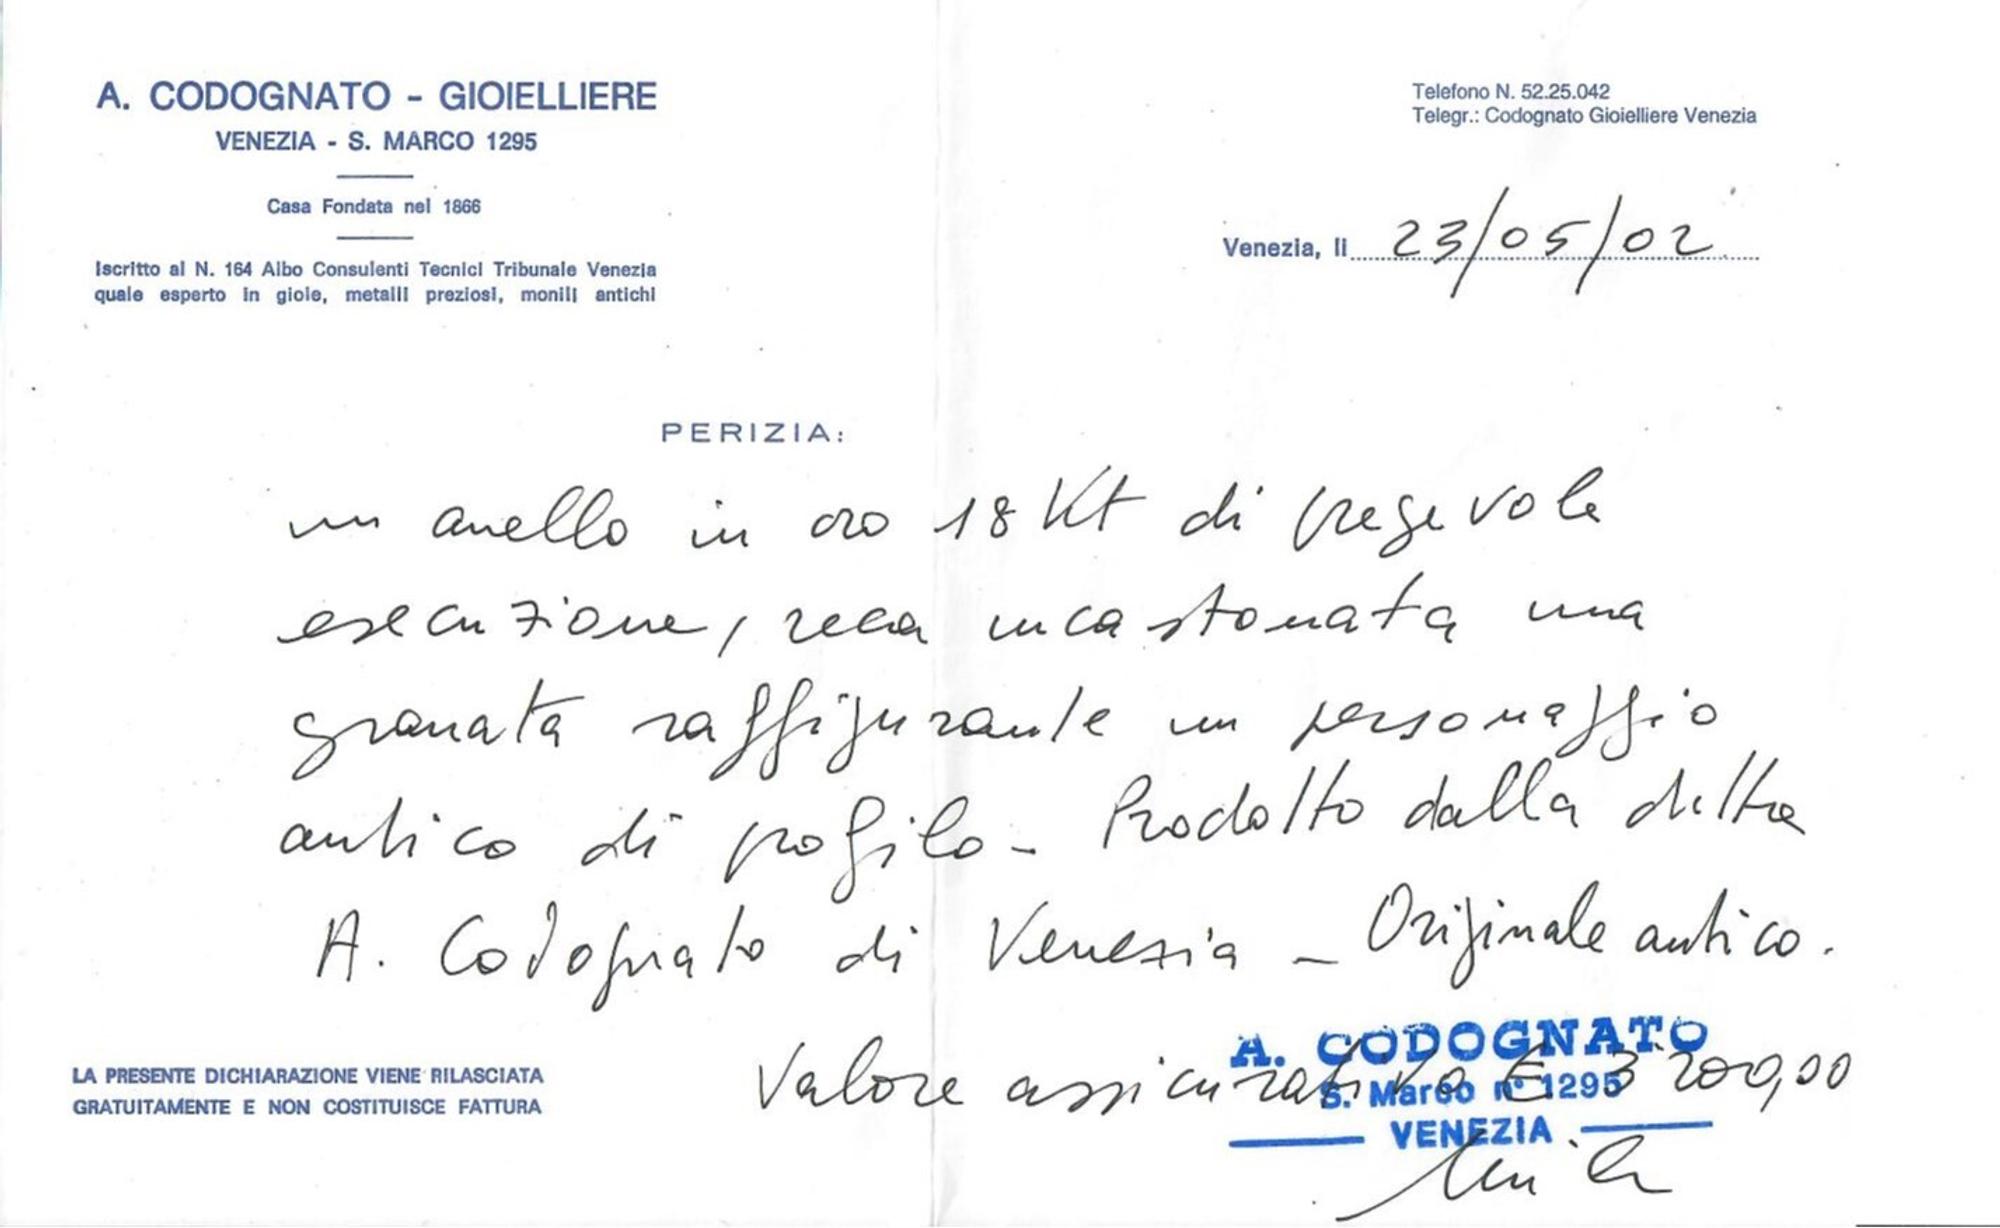 A. CODOGNATO - GIOIELLIERE
VENEZIA - S. MARCO 1295
Casa Fondata nel 1866
Iscritto al N. 164 Albo Consulenti Tecnici Tribunale Venezia
quale esperto in gioie, metalli preziosi, monili antichi
Telefono N. 52.25.042
Telegr.: Codognato Gioielliere Venezia
Venezia, li 23/05/02
PERIZIA:
un anello in oro 18 Kt di pregevole
esecuzione, reca incastonata una
granata raffigurante un personaggio
antico di profilo - Prodotto dalla ditta
A. Codognato di Venezia - Originale antico.
Valore assicurativo € 3200,00
A. CODOGNATO
S. Marco n° 1295
VENEZIA
LA PRESENTE DICHIARAZIONE VIENE RILASCIATA
GRATUITAMENTE E NON COSTITUISCE FATTURA